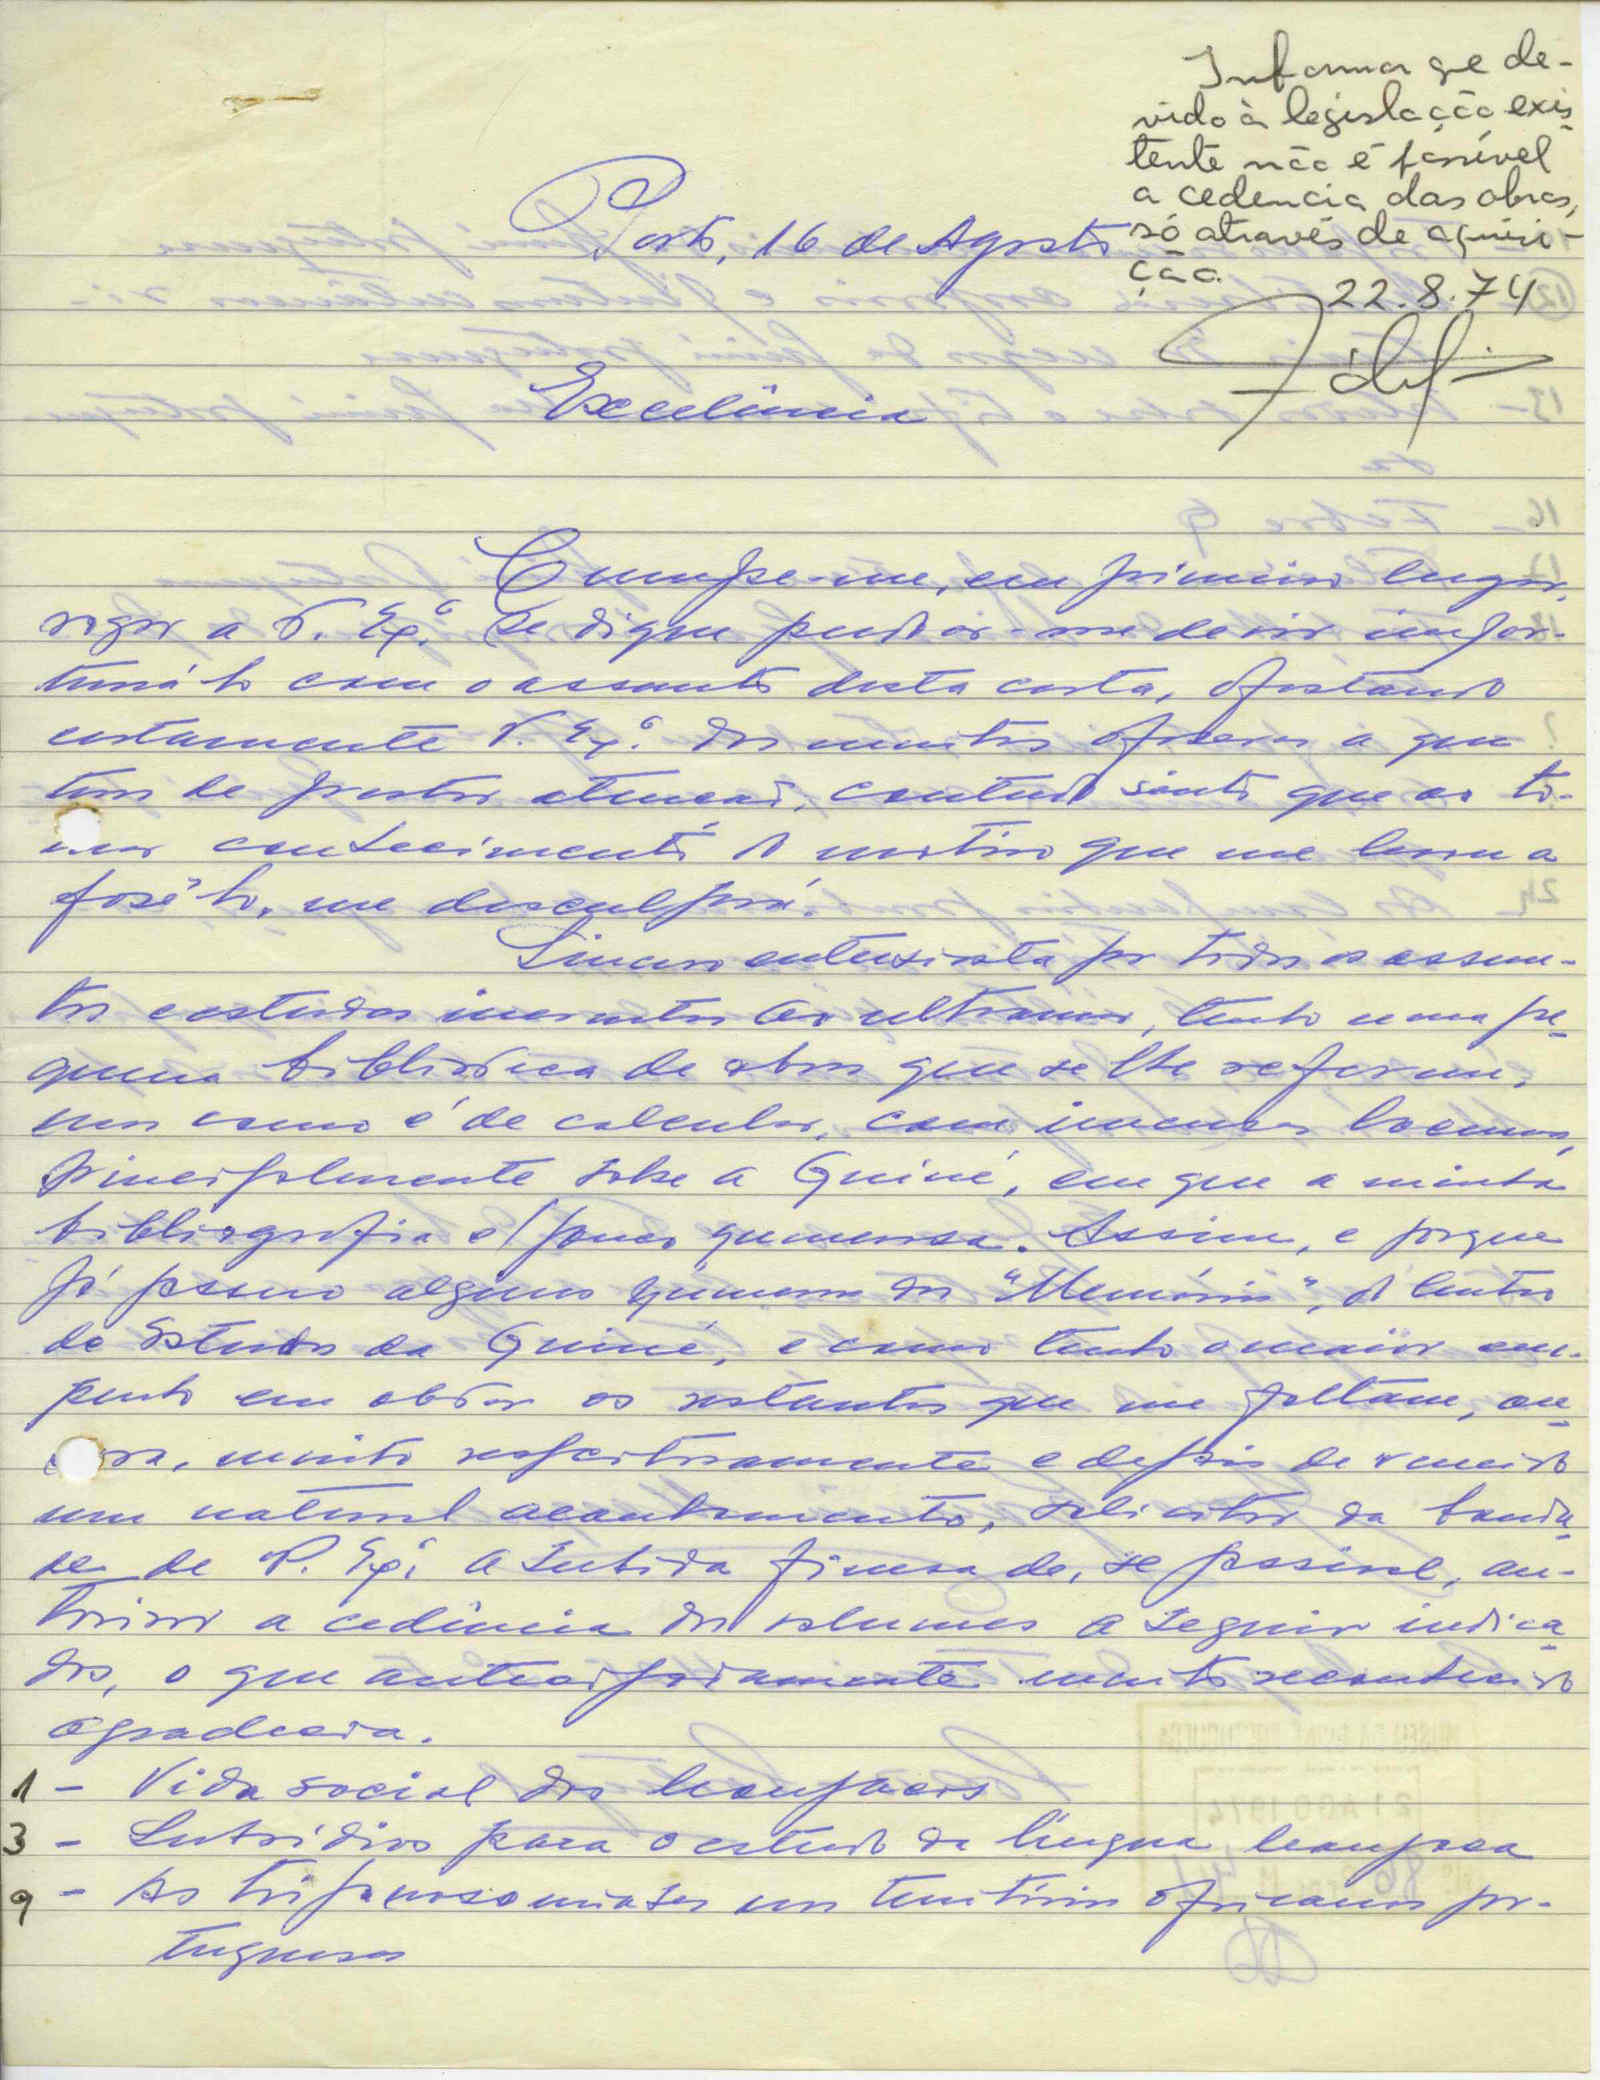 Informar que de-
vido à legislação exis-
tente não é possível
a cedencia das obras,
só através de aquisi-
ção.
22.8.74
Porto, 16 de Agosto
Excelência
Cumpre-me, em primeiro lugar,
rogar a V. Exª. se digne perdoar-me de vir impor-
tuná-lo com o assunto desta carta, afastando
certamente V. Exª. dos muitos afazeres a que
tem de prestar atenção, contudo sinto que ao to-
mar conhecimento do motivo que me levou a
fazê-lo, me desculpará.
Sincero entusiasta por todos os assun-
tos e estudos inerentes ao ultramar, tenho uma pe-
quena biblioteca de obras que se lhe referem,
mas como é de calcular, com imensas lacunas,
principalmente sobre a Guiné, em que a minha
bibliografia é pouco numerosa. Assim, e porque
já possuo alguns números das "Memórias", do Centro
de Estudos da Guiné, e como tenho o maior em-
penho em obter os restantes que me faltam, ou-
sara, muito respeitosamente e depois de vencido
um natural acanhamento, solicitar da bonda-
de de V. Exª. a subida fineza de, se possível, au-
torizar a cedência dos volumes a seguir indica-
dos, o que antecipadamente muito reconhecido
agradecia.
1 - Vida social dos Manjacos
3 - Subsídios para o estudo da língua Manjaca
9 - As tripanosomiases nos territórios africanos por-
tugueses